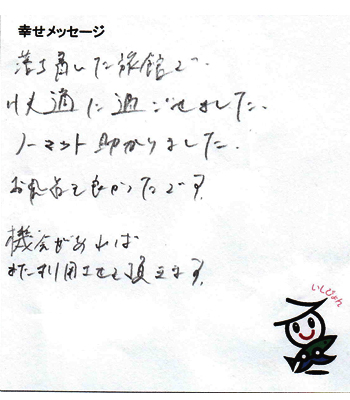 幸せメッセージ
落ち着いた旅館で、
快適に過ごせました。
ノーマット助かりました。
お風呂も良かったです。
機会があれば
また利用させて頂きます。
いしぴょん